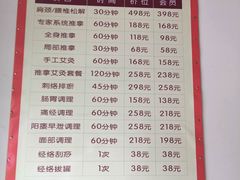 时间 价位 会员
肩颈/腰椎松解 30分钟 498元 398元
专家系统推拿 60分钟 168元 158元
全身推拿 60分钟 118元 98元
局部推拿 30分钟 68元 58元
手工艾灸 60分钟 188元 168元
推拿艾灸套餐 120分钟 258元 238元
刺络排瘀 45分钟 298元 258元
肠胃调理 60分钟 218元 198元
痛经调理 60分钟 218元 198元
阳萎早泄调理 60分钟 218元 198元
面部调理 60分钟 218元 198元
经络刮痧 1次 38元 38元
经络拔罐 1次 38元 38元